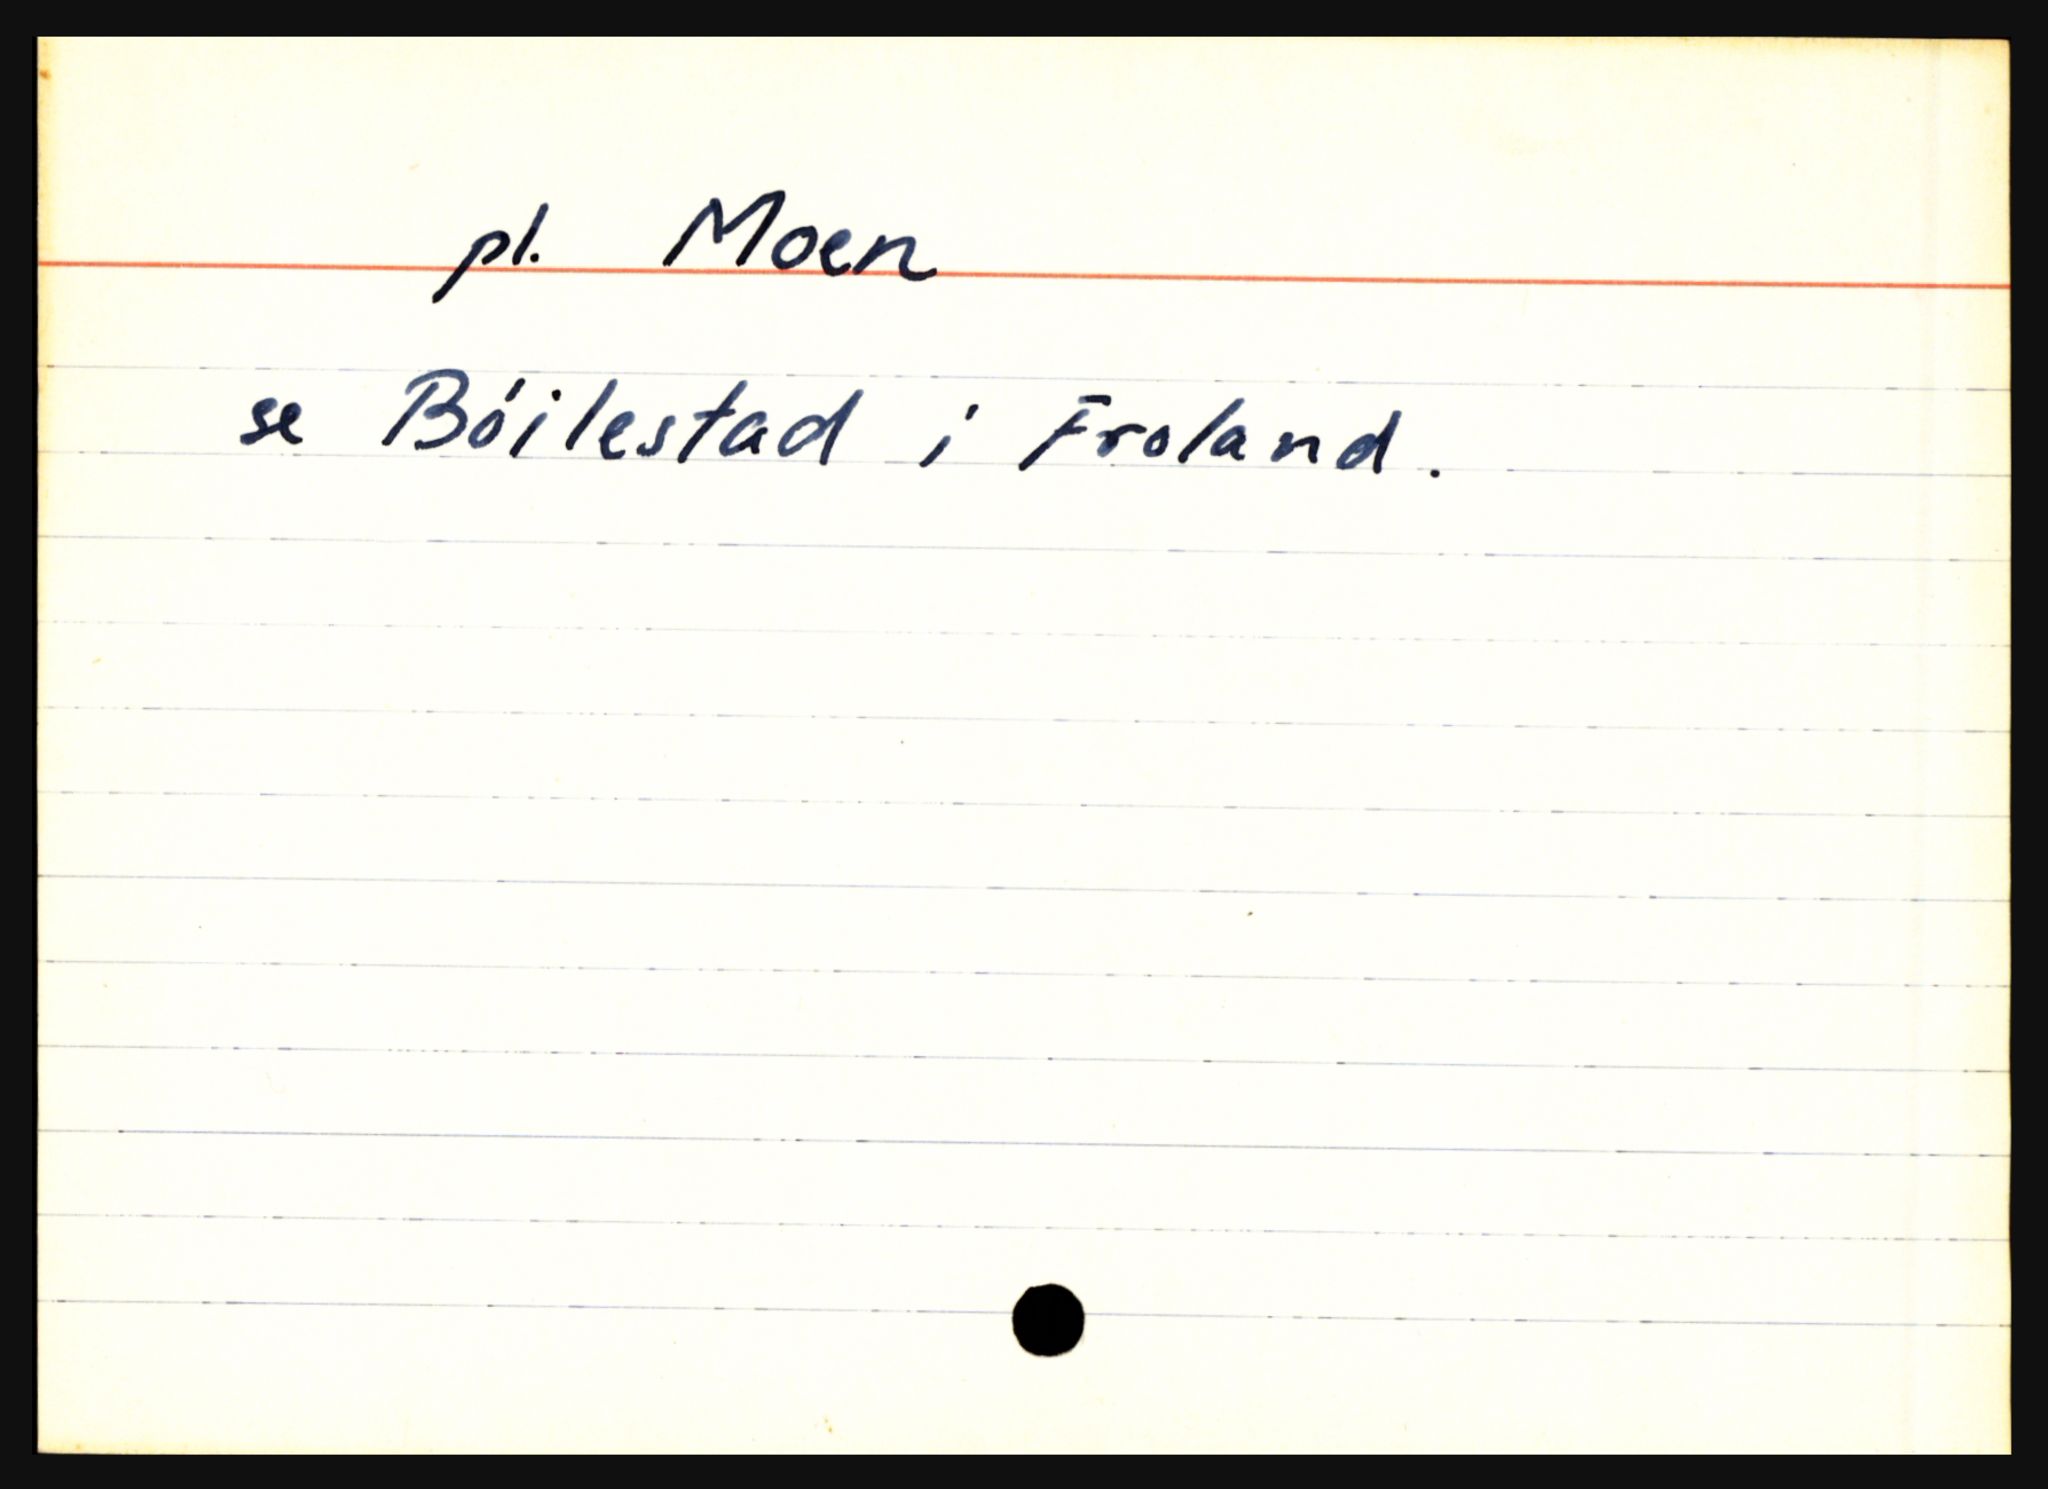 pl. Moen
se Bóilestad i Froland.